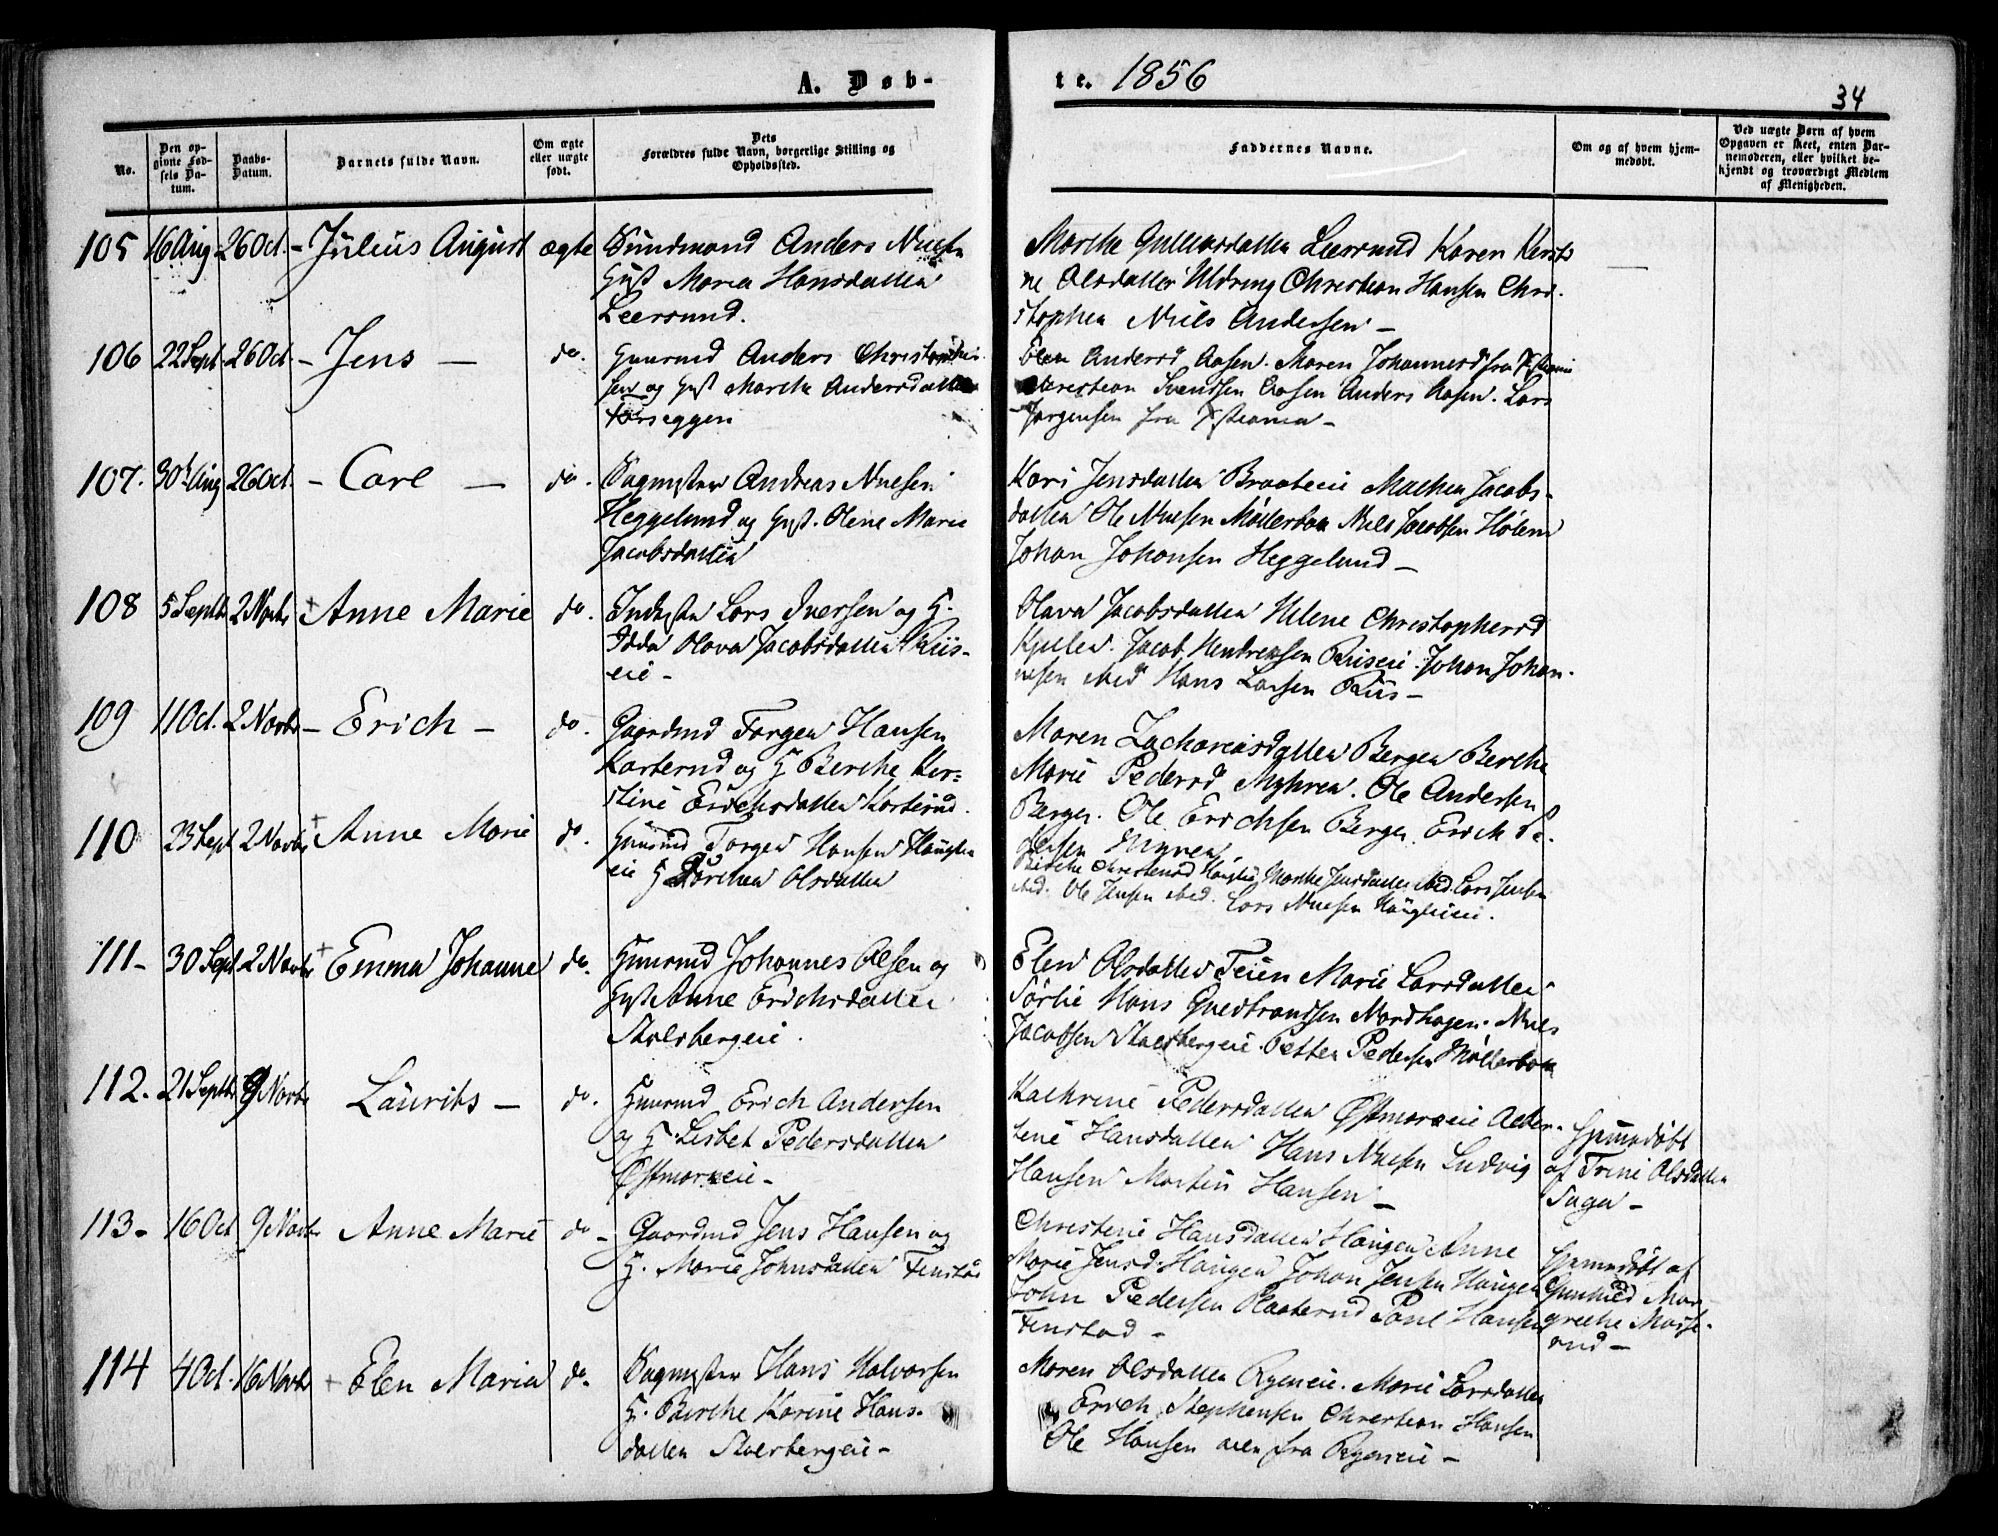 A. Døb-
te. 1856
34
No.
Den op-
givne Fød-
sels Da-
tum.
Daabs-
Datum.
Barnets fulde Navn.
Om ægte
eller uægte
født.
Dets
Forældres fulde Navn, borgerlige Stilling og
Opholdssted.
Faddernes Navne.
Om og af hvem hjem-
medøbt.
Ved uægte Børn af hvem
Opgaven er skeet, enten Bar-
nemoderen, eller hvilket be-
kjendt og troværdigt Medlem
af Menigheden.
105 16 Aug 26 Oct. - Julius August ægte Sundmand Anders Nielsen
Hust Maria Hansdatter
Leersund.
Marthe Gulliksdatter Leersund Karen Kersti
ne Olsdatter Christian Hansen Chri-
stopher Niels Andersen -
106 22 Sept. 26 Oct - Jens - do. Huusmd Anders Christophers-
sen og Hust Marthe Andersdatter
Torseggen
Elen Andersd Aasen. Maren Johannesd fra Xstiania
Christian Svendsen Aasen Anders Aasen. Lars
Jørgensen fra Xstiania -
107. 30 Aug 26 Oct. - Carl - do. Sagmester Andreas Nielsen
Heggelund og Hust. Olene Marie
Jacobsdatter
Kari Jensdatter Braateie Mathea Jacobs-
datter Ole Nielsen Møllerbak Niels Jacobsen Holem
Johan Johansen Heggelund -
108 5 Septb 2 Novbr + Anne Marie do. Inderster Lars Iversen og H.
Idda Olava Jacobsdatter Riis-
eie -
Olava Jacobsdatter Helene Christophersd
Jacob Hendriksen Riiseie. Johan Johan-
nesen ibid Hans Larsen Riis -
109 11 Oct. 2 Novbr - Erich - do. Gaardmd Torger Hansen
Karterud og H Berthe Ker-
stine Erichsdatter Karterud.
Maren Zachariasdatter Berger Berthe
Marie Pedersd Myhren. Ole Andersen
Berger. Ole Erichsen Berger. Erich Pe-
dersen Myren
110 23 Sept 2 Novbr + Anne Marie do. Huusmd Torger Hansen Haugli
eie H Dorthea Olsdatter
Berthe Christensd Hauglid Marthe Jensdatter ibid. Lars Jensen
ibid. Ole Jensen ibid. Lars Nielsen Hauglieie.
111- 30 Sept 2 Novbr + Emma Johanne do. Huusmd Johannes Olsen og
Hust Anne Erichsdatter
Stalsbergeie.
Elen Olsdatter Teien Marie Larsdatter
Sørlie Hans Gulbrandsen Nordhagen. Niels
Jacobsen Stalsbergeie. Petter Pedersen Møllerbak
112. 21 Septbr 9 Novbr Laurits - do. Huusmd Erich Andersen
og H. Lisbet Pedersdatter
Østmorkeie -
Kathrine Pedersdatter Østmorkeie
tine Hansdatter Hans Nielsen Ludvig
Hansen Martin Hansen -
Hjemmedøbt
af Trine Olsdatter
Saga -
113- 16 Oct 9 Novbr Anne Marie do - Gaardmd Jens Hansen og
H. Marie Johnsdatter Fenstad
Christine Hansdatter Haugen Anne
Marie Jensd. Haugen Johan Jensen Haugen
John Pedersen Paul Hansen
Fenstad -
Hjemmedøbt af
Gunhild Mar-
grethe
rud -
114 4 Oct. 16 Novbr + Elen Maria do. Sagmester Hans Halvorsen
H. Berthe Karine Hans-
datter Stalsbergeie -
Maren Olsdatter Rygeneie. Marie Larsdatter
Erich Stephensen Christian Hansen
Ole Hansen alle fra Rygeneie -